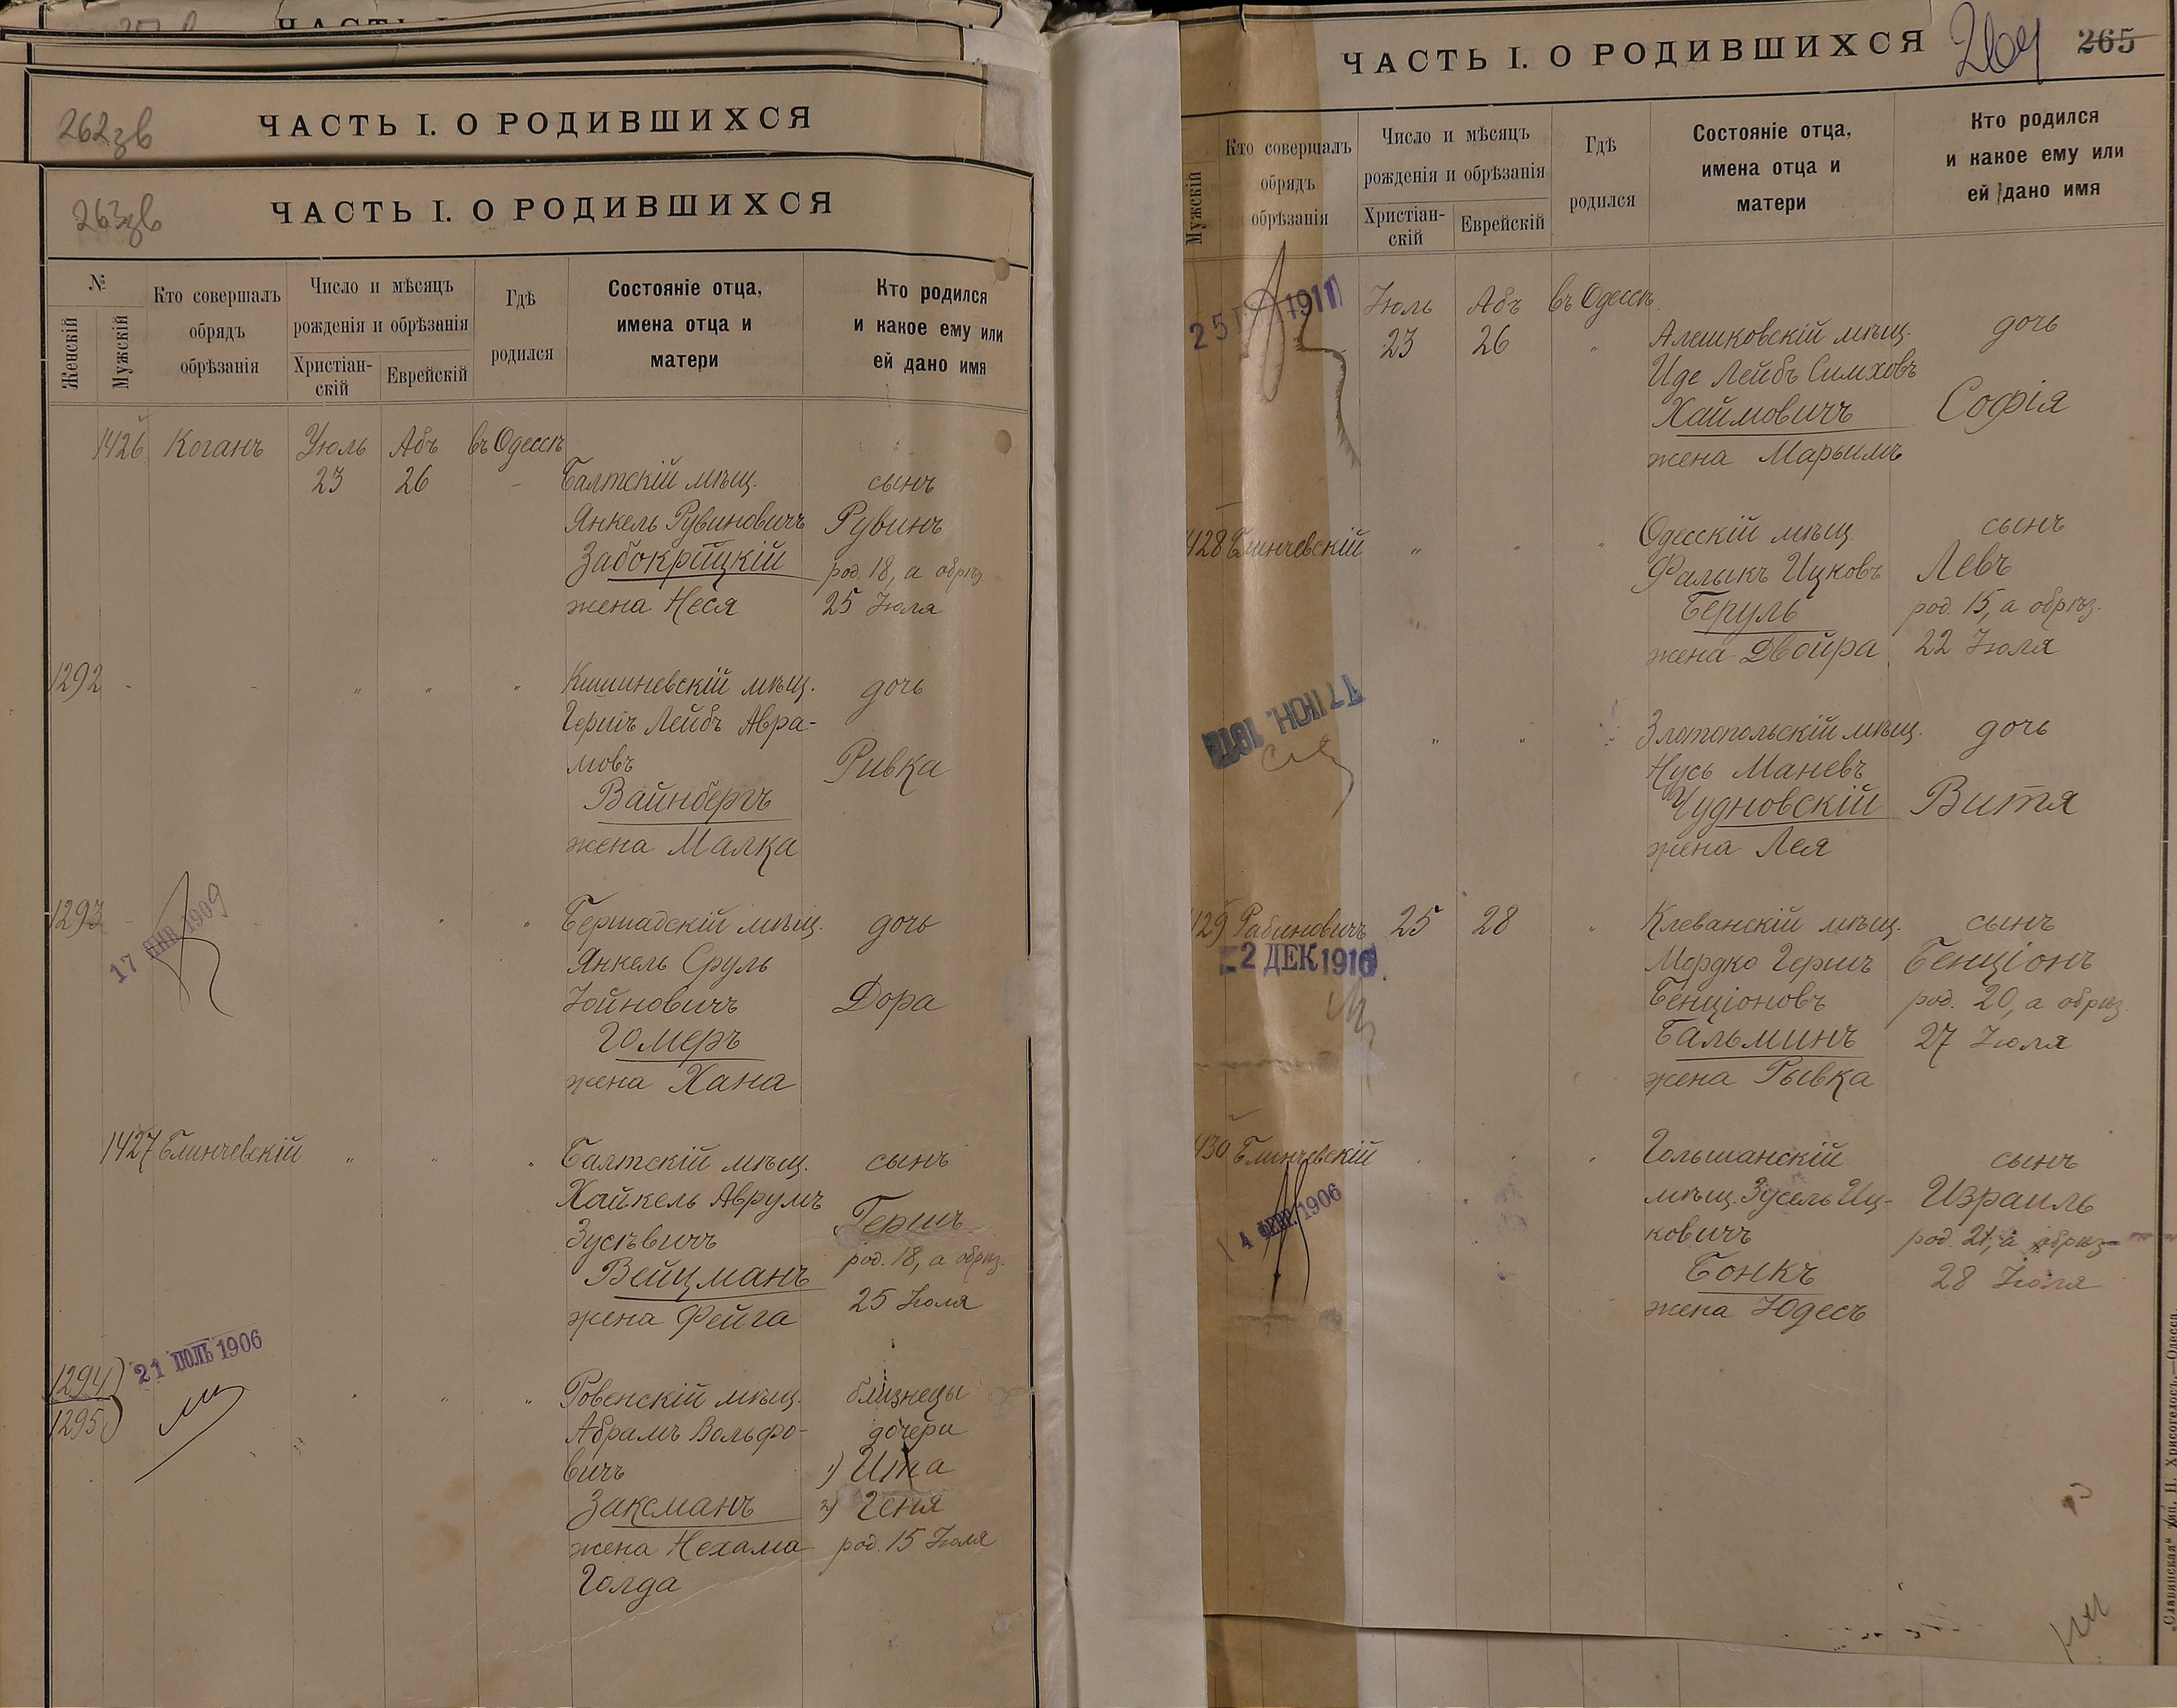 ЧАСТЬ I. О РОДИВШИХСЯ
262зв
ЧАСТЬ I. О РОДИВШИХСЯ
263зв
№
Женскій
Мужскій
Кто совершалъ
обрядъ
обрѣзанія
Число и мѣсяцъ
рожденія и обрѣзанія
Христіан-
скій
Еврейскій
Гдѣ
родился
Состояніе отца,
имена отца и
матери
Кто родился
и какое ему или
ей дано имя
1426 Коганъ Іюль Абъ въ Одессѣ
23 26 Балтскій мѣщ. сынъ
Янкель Рувиновичъ Рувинъ
Забокрицкій род. 18, а обрѣз.
жена Неся 25 Іюля
1292 - - " " " Кишиневскій мѣщ. дочь
Гершъ Лейбъ Авра-
мовъ Ривка
Вайнбергъ
жена Малка
1293 - " " " Бершадскій мѣщ. дочь
17 ЯНВ 1909
Янкель Сруль
Іойновичъ Дора
Гомеръ
жена Хана
1427 Блинчевскій " " " Балтскій мѣщ. сынъ
Хайкель Аврумъ
Зусьвичъ Гершъ
род. 18, а обрѣз.
Вейцманъ
25 Іюля
жена Фейга
1294) 21 ІЮЛЬ 1906
1295) " " " Ровенскій мѣщ. близнецы
Абрамъ Вольфо- дочери
вичъ 1) Ита
Заксманъ 2) Геня
жена Нехама род. 15 Іюля
Голда
ЧАСТЬ I. О РОДИВШИХСЯ 264 265
Мужскій
Кто совершалъ
обрядъ
обрѣзанія
Число и мѣсяцъ
рожденія и обрѣзанія
Христіан-
скій
Еврейскій
Гдѣ
родился
Состояніе отца,
имена отца и
матери
Кто родился
и какое ему или
ей дано имя
25 1911 Іюль Абъ въ Одессѣ
23 26 " Алешковскій мѣщ. дочь
Иде Лейбъ Симховъ
Хаймовичъ Софія
жена Марьимъ
428 Блинчевскій " " " Одесскій мѣщ. сынъ
Фалыкъ Ицковъ Левъ
Беруль род. 15, а обрѣз.
жена Двойра 22 Іюля
17 ІЮН. 191
" " " Златопольскій мѣщ. дочь
Нусь Маневъ
Чудновскій Витя
жена Лея
429 Рабиновичъ 25 28 " Клеванскій мѣщ. сынъ
2 ДЕК 1916
Мордко Гершъ Бенціонъ
Бенціоновъ род. 20, а обрѣз.
Бальминъ 27 Іюля
жена Рывка
430 Блинчевскій " " " Гольшанскій сынъ
4 ФЕВ. 1906
мѣщ. Зусель Иц- Израиль
ковичъ род. 21, а обрѣз.
Бонкъ 28 Іюля
жена Юдесъ
„Славянская“ Тип. Н. Хрисогелосъ.—Одесса.